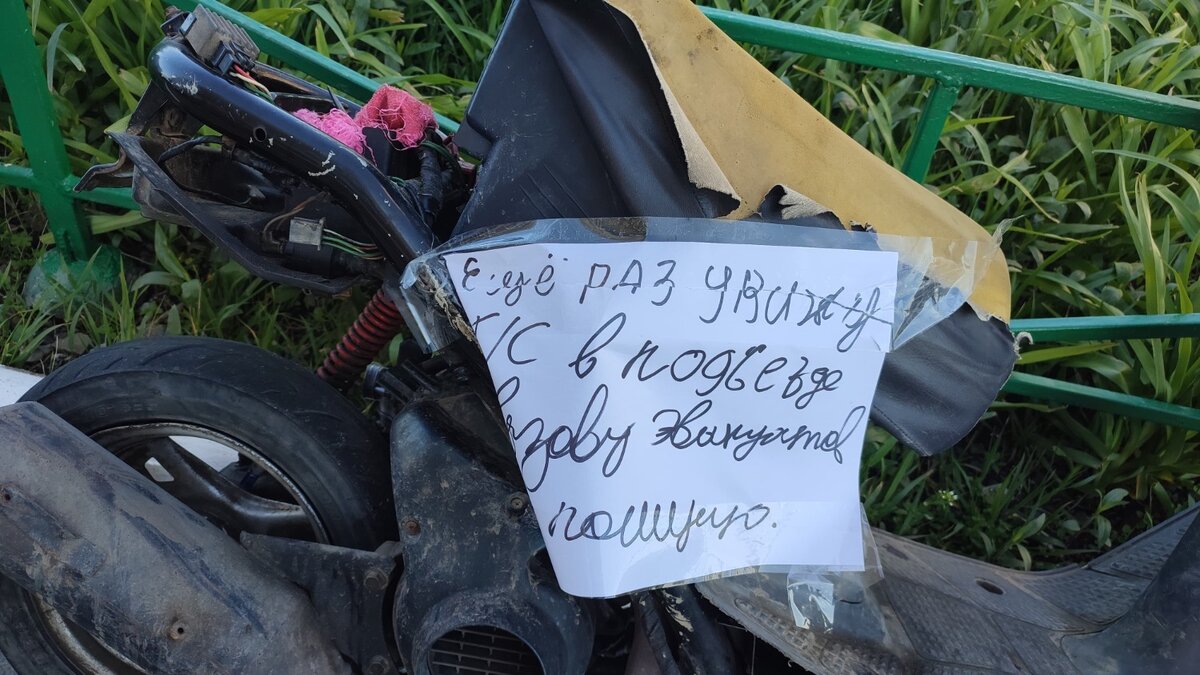 Ещё РАЗ УВИЖУ
Т/С в подъезде
вызову эвакуатор
полицию.